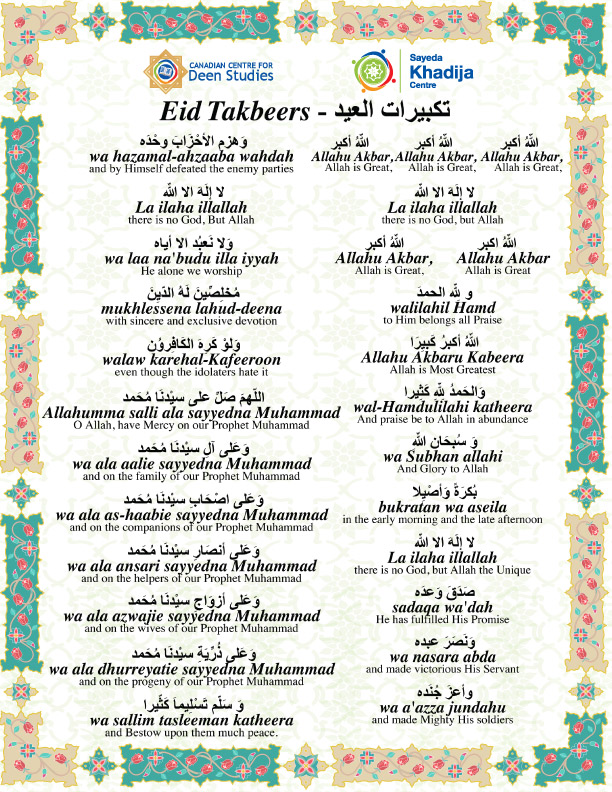 CANADIAN CENTRE FOR
Deen Studies
Sayeda
Khadija
Centre
Eid Takbeers - تكبيرات العيد
اللهُ أكبر اللهُ أكبر اللهُ أكبر
Allahu Akbar, Allahu Akbar, Allahu Akbar,
Allah is Great, Allah is Great, Allah is Great,
لا إلَهَ الا الله
La ilaha illallah
there is no God, but Allah
اللهُ اكبر اللهُ أكبر
Allahu Akbar, Allahu Akbar
Allah is Great, Allah is Great
و لله الحمدَ
walilahil Hamd
to Him belongs all Praise
اللهُ أكبرُ كَبيرَا
Allahu Akbaru Kabeera
Allah is Most Greatest
وَالحَمدُ لله كَثيرا
wal-Hamdulilahi katheera
And praise be to Allah in abundance
وَ سُبحَان الله
wa Subhan allahi
And Glory to Allah
بُكرَةً وَأصْيلا
bukratan wa aseila
in the early morning and the late afternoon
لا إلَهَ الا الله
La ilaha illallah
there is no God, but Allah the Unique
صَدَقَ وَعدَه
sadaqa wa'dah
He has fulfilled His Promise
وَنَصَرَ عبده
wa nasara abda
and made victorious His Servant
وأعزّ جُنْده
wa a'azza jundahu
and made Mighty His soldiers
وَهزم الأحْزَابَ وحْدَه
wa hazamal-ahzaaba wahdah
and by Himself defeated the enemy parties
لا إلَهَ الا الله
La ilaha illallah
there is no God, But Allah
وَلا نَعبُد الا أياه
wa laa na'budu illa iyyah
He alone we worship
مُخلصِّينَ لَهُ الدَينَ
mukhlessena lahud-deena
with sincere and exclusive devotion
وَلوْ كَرهَ الكَافروُن
walaw karehal-Kafeeroon
even though the idolaters hate it
اللّهمَ صَلّ على سيْدنَا مُحَمد
Allahumma salli ala sayyedna Muhammad
O Allah, have Mercy on our Prophet Muhammad
وَعَلى آل سيْدنَا مُحَمد
wa ala aalie sayyedna Muhammad
and on the family of our Prophet Muhammad
وَعَلى اصْحَاب سيْدنَا مُحَمد
wa ala as-haabie sayyedna Muhammad
and on the companions of our Prophet Muhammad
وَعَلى أنصَار سيْدنَا مُحَمد
wa ala ansari sayyedna Muhammad
and on the helpers of our Prophet Muhammad
وَعَلى أزوَاج سيْدنَا مُحَمد
wa ala azwajie sayyedna Muhammad
and on the wives of our Prophet Muhammad
وَعَلى ذُرّيَةِ سيْدنَا مُحَمد
wa ala dhurreyatie sayyedna Muhammad
and on the progeny of our Prophet Muhammad
وَ سَلّم تَسْليماَ كَثْيرا
wa sallim tasleeman katheera
and Bestow upon them much peace.